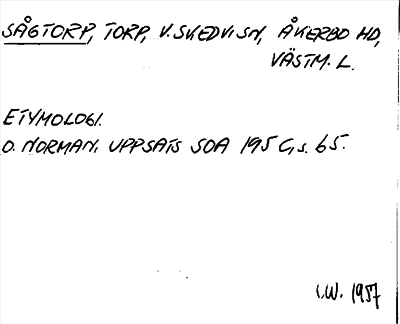 SÅGTORP, TORP, V. SKEDVI SN, ÅKERBO HD,
VÄSTM. L.
ETYMOLOGI.
O. NORMAN. UPPSATS SOA 195 C, s. 65.
I.W. 1957